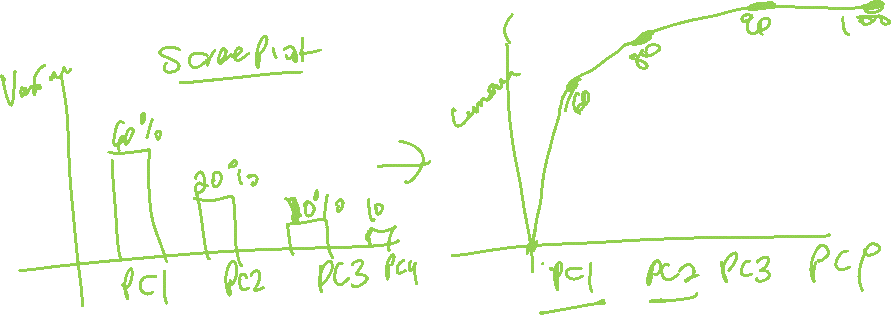 Scree Plot
60%
20%
10%
10
PC1
PC2
PC3
PC4
60
80
90
100
PC1
PC2
PC3
PCP